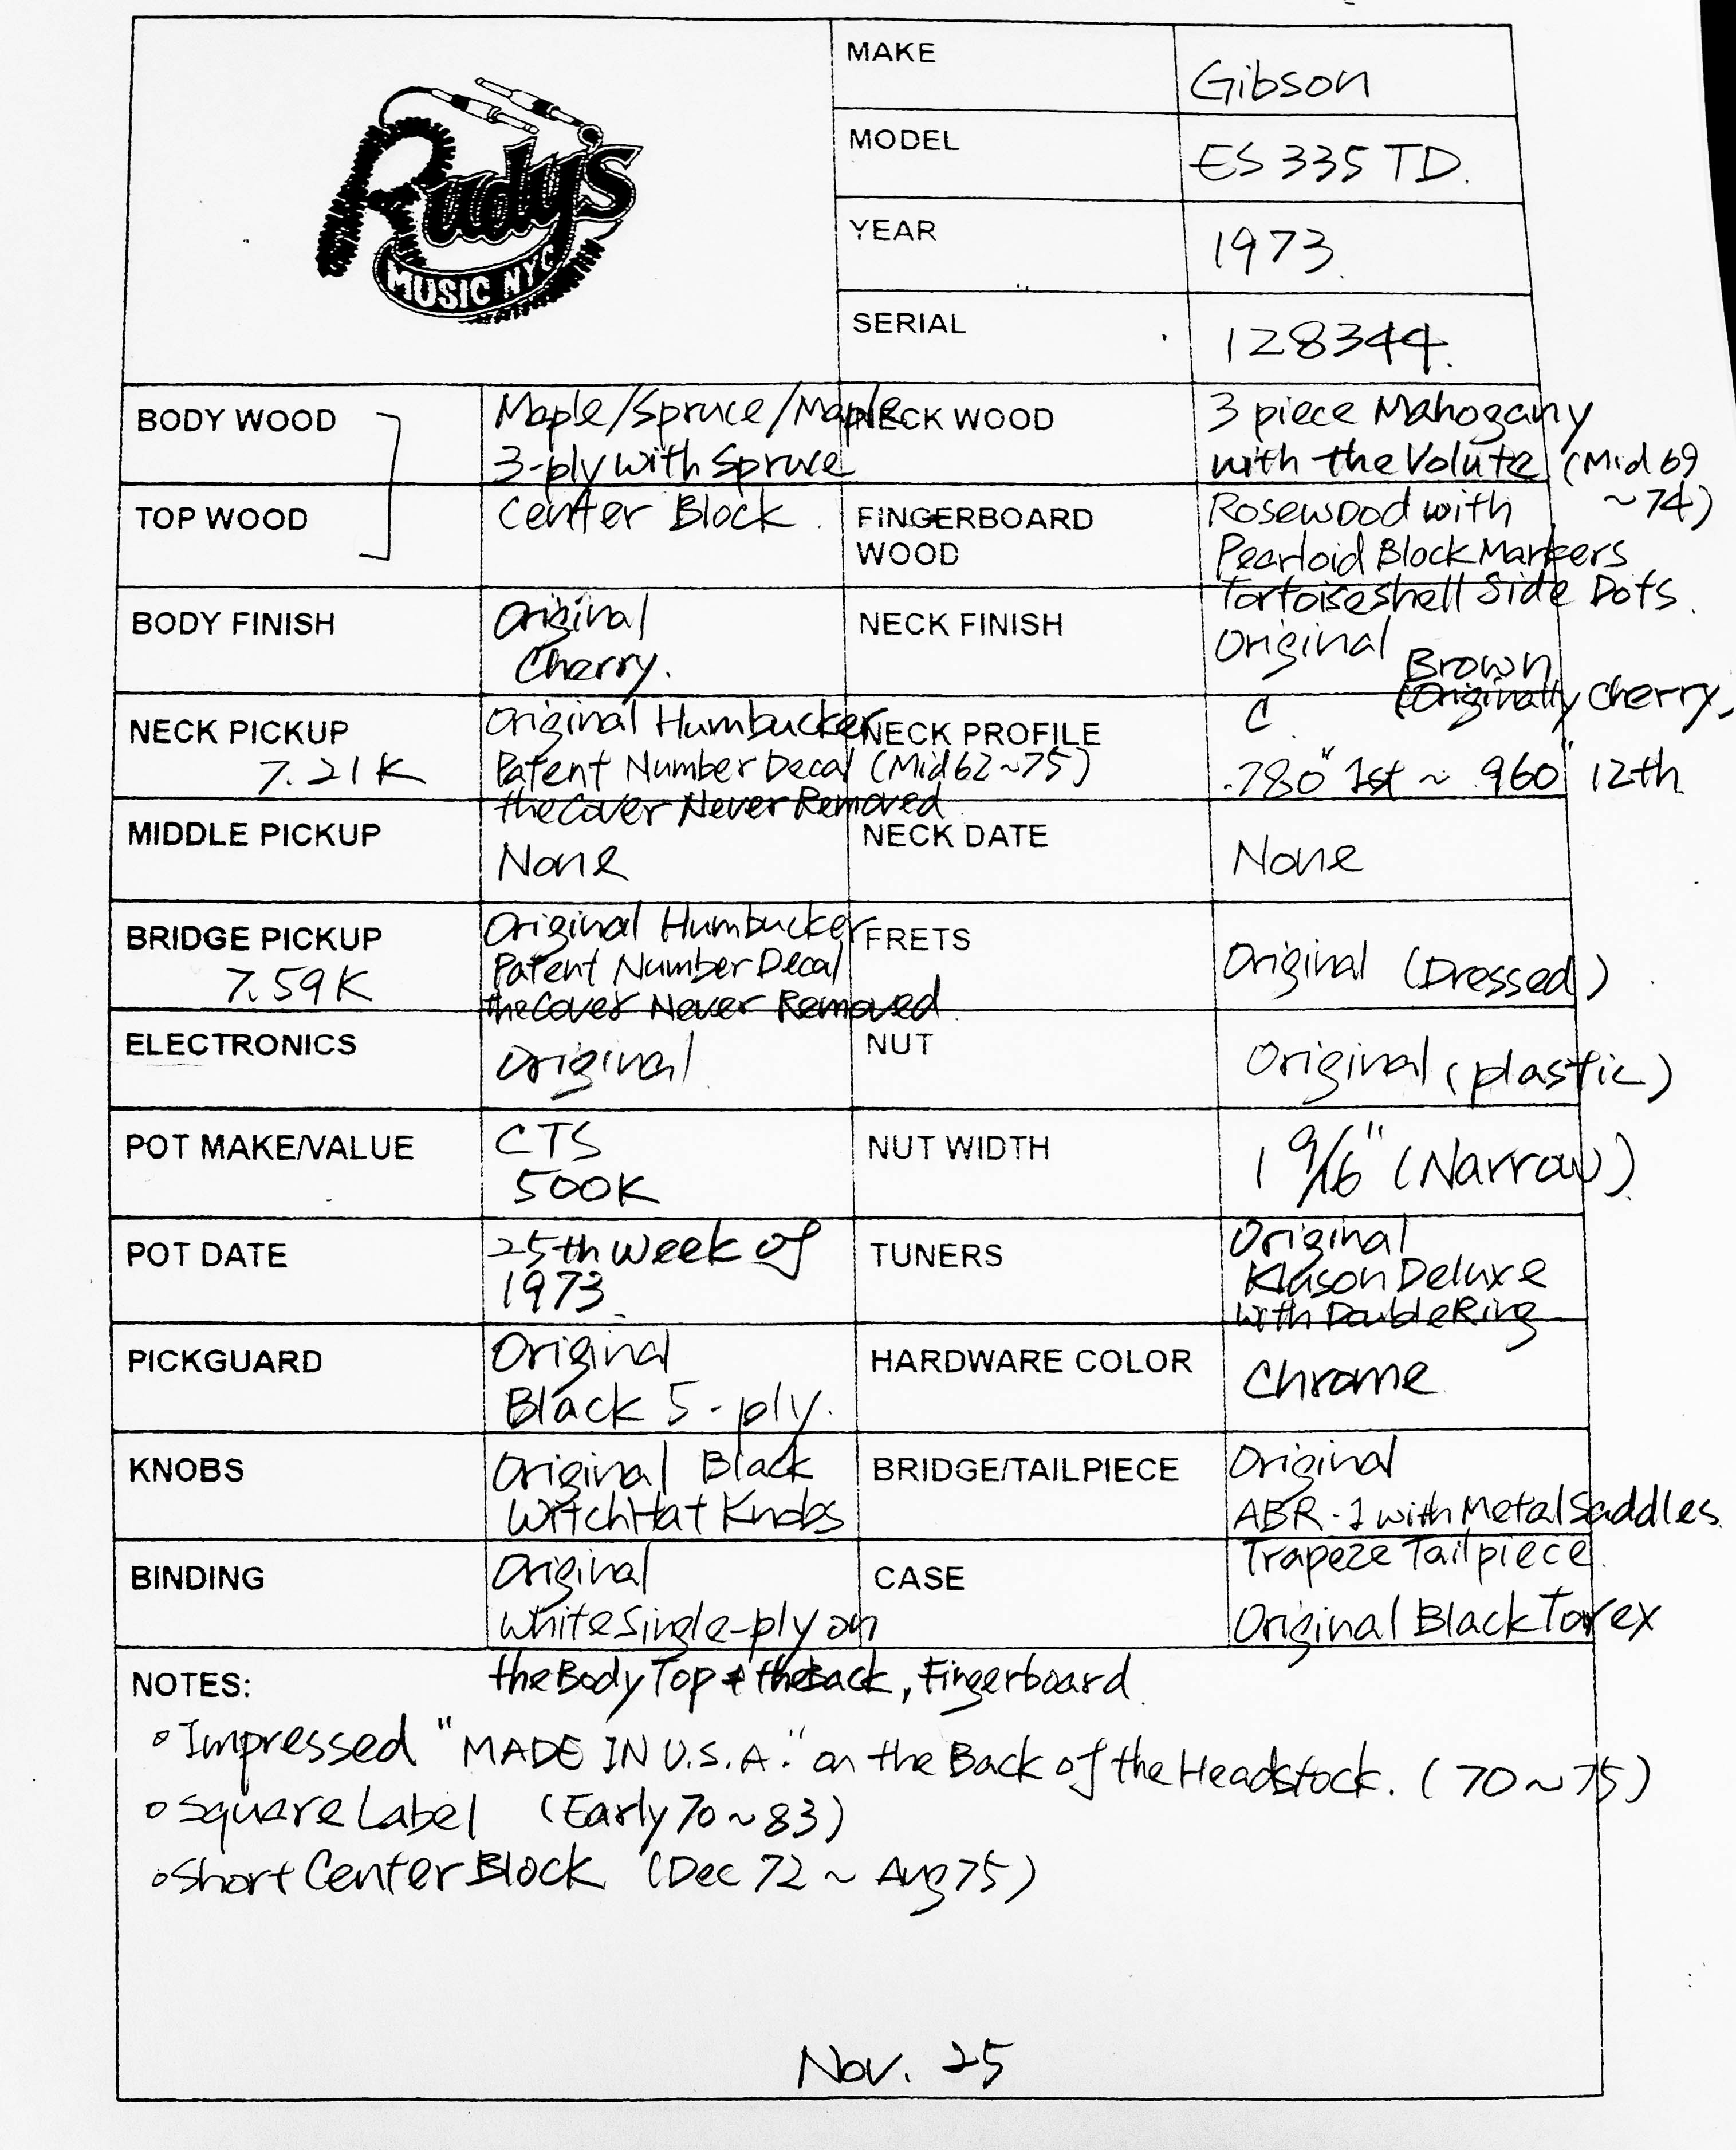 Rudy's
MUSIC NYC
MAKE
Gibson
MODEL
ES 335 TD.
YEAR
1973.
SERIAL
128344.
BODY WOOD
TOP WOOD
Maple/Spruce/Maple
3-ply with Spruce
Center Block.
NECK WOOD
3 piece Mahogany
with the Volute (Mid 69
~74)
FINGERBOARD
WOOD
Rosewood with
Pearloid Block Markers
Tortoiseshell Side Dots.
BODY FINISH
Original
Cherry.
NECK FINISH
Original
Brown
(Originally Cherry,
NECK PICKUP
7.21K
Original Humbucker
Patent Number Decal (Mid 62~75)
the Cover Never Removed
NECK PROFILE
C.
.780" 1st ~ .960" 12th
MIDDLE PICKUP
None
NECK DATE
None
BRIDGE PICKUP
7.59K
Original Humbucker
Patent Number Decal
the Cover Never Removed.
FRETS
Original (Dressed)
ELECTRONICS
Original.
NUT
Original (plastic)
POT MAKE/VALUE
CTS
500K
NUT WIDTH
1 9/16" (Narrow).
POT DATE
25th week of
1973.
TUNERS
Original
Kluson Deluxe
with Double Ring
PICKGUARD
Original
Black 5-ply.
HARDWARE COLOR
Chrome.
KNOBS
Original Black
Witch Hat Knobs
BRIDGE/TAILPIECE
Original
ABR-1 with Metal Saddles.
Trapeze Tailpiece.
BINDING
Original
White Single-ply on
the Body Top & the Back, Fingerboard.
CASE
Original Black Torex
NOTES:
° Impressed "MADE IN U.S.A." on the Back of the Headstock. (70~75)
° Square Label (Early 70~83)
° Short Center Block (Dec 72 ~ Aug 75)
Nov. 25